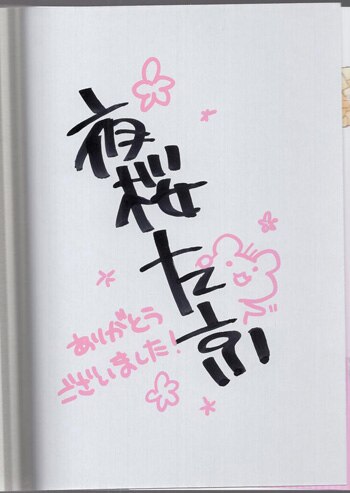 夜桜左京
ありがとう
ございました!